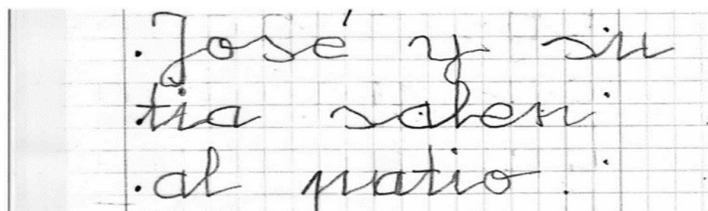 José y su
tia salen
al patio.